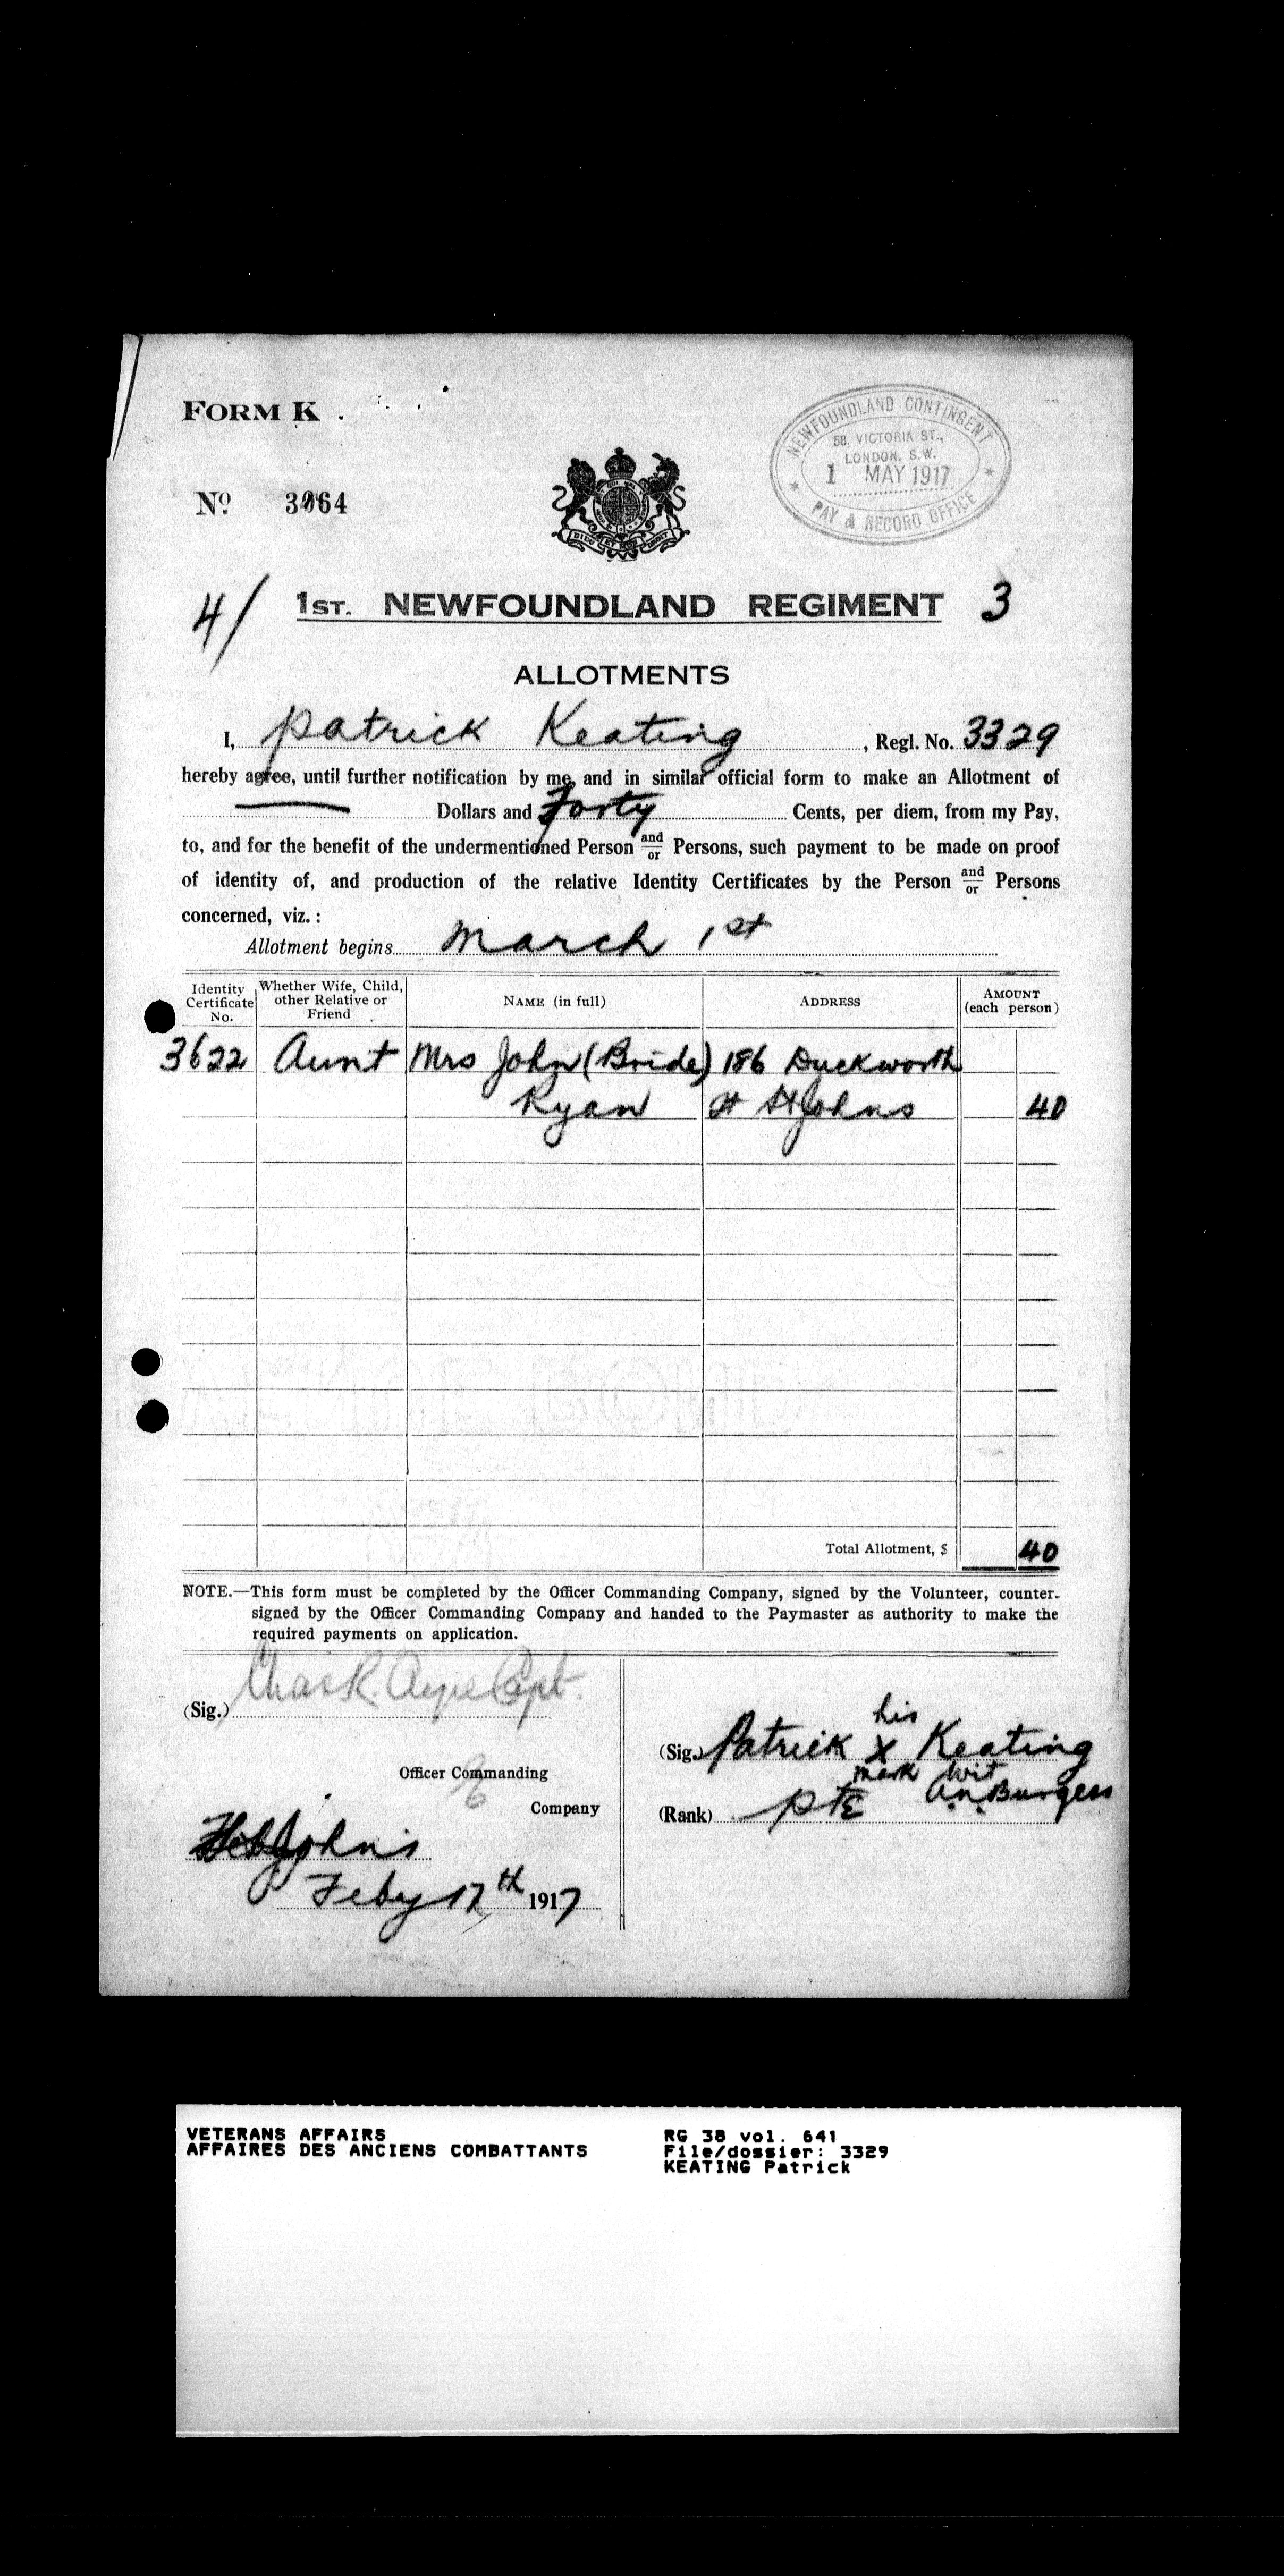 FORM K.
NEWFOUNDLAND CONTINGENT
58, VICTORIA ST.,
LONDON, S.W.
1 MAY 1917
PAY & RECORD OFFICE
No. 3064
4/ 1ST. NEWFOUNDLAND REGIMENT 3
ALLOTMENTS
I, Patrick Keating, Regl. No. 3329
hereby agree, until further notification by me, and in similar official form to make an Allotment of
Dollars and Forty Cents, per diem, from my Pay,
to, and for the benefit of the undermentioned Person and/or Persons, such payment to be made on proof
of identity of, and production of the relative Identity Certificates by the Person and/or Persons
concerned, viz.:
Allotment begins March 1st
Identity Certificate No. Whether Wife, Child, other Relative or Friend NAME (in full) ADDRESS AMOUNT (each person)
3622 Aunt Mrs John (Bride) 186 Duckworth
Ryan St St Johns 40
Total Allotment, $ 40
NOTE.—This form must be completed by the Officer Commanding Company, signed by the Volunteer, counter-
signed by the Officer Commanding Company and handed to the Paymaster as authority to make the
required payments on application.
(Sig.) Chas R. Ayre Capt.
Officer Commanding
Company
St Johns
Feby 17th 1917
his
(Sig.) Patrick X Keating
mark Wit
(Rank) Pte A.N. Burgess
VETERANS AFFAIRS
AFFAIRES DES ANCIENS COMBATTANTS
RG 38 vol. 641
File/dossier: 3329
KEATING Patrick